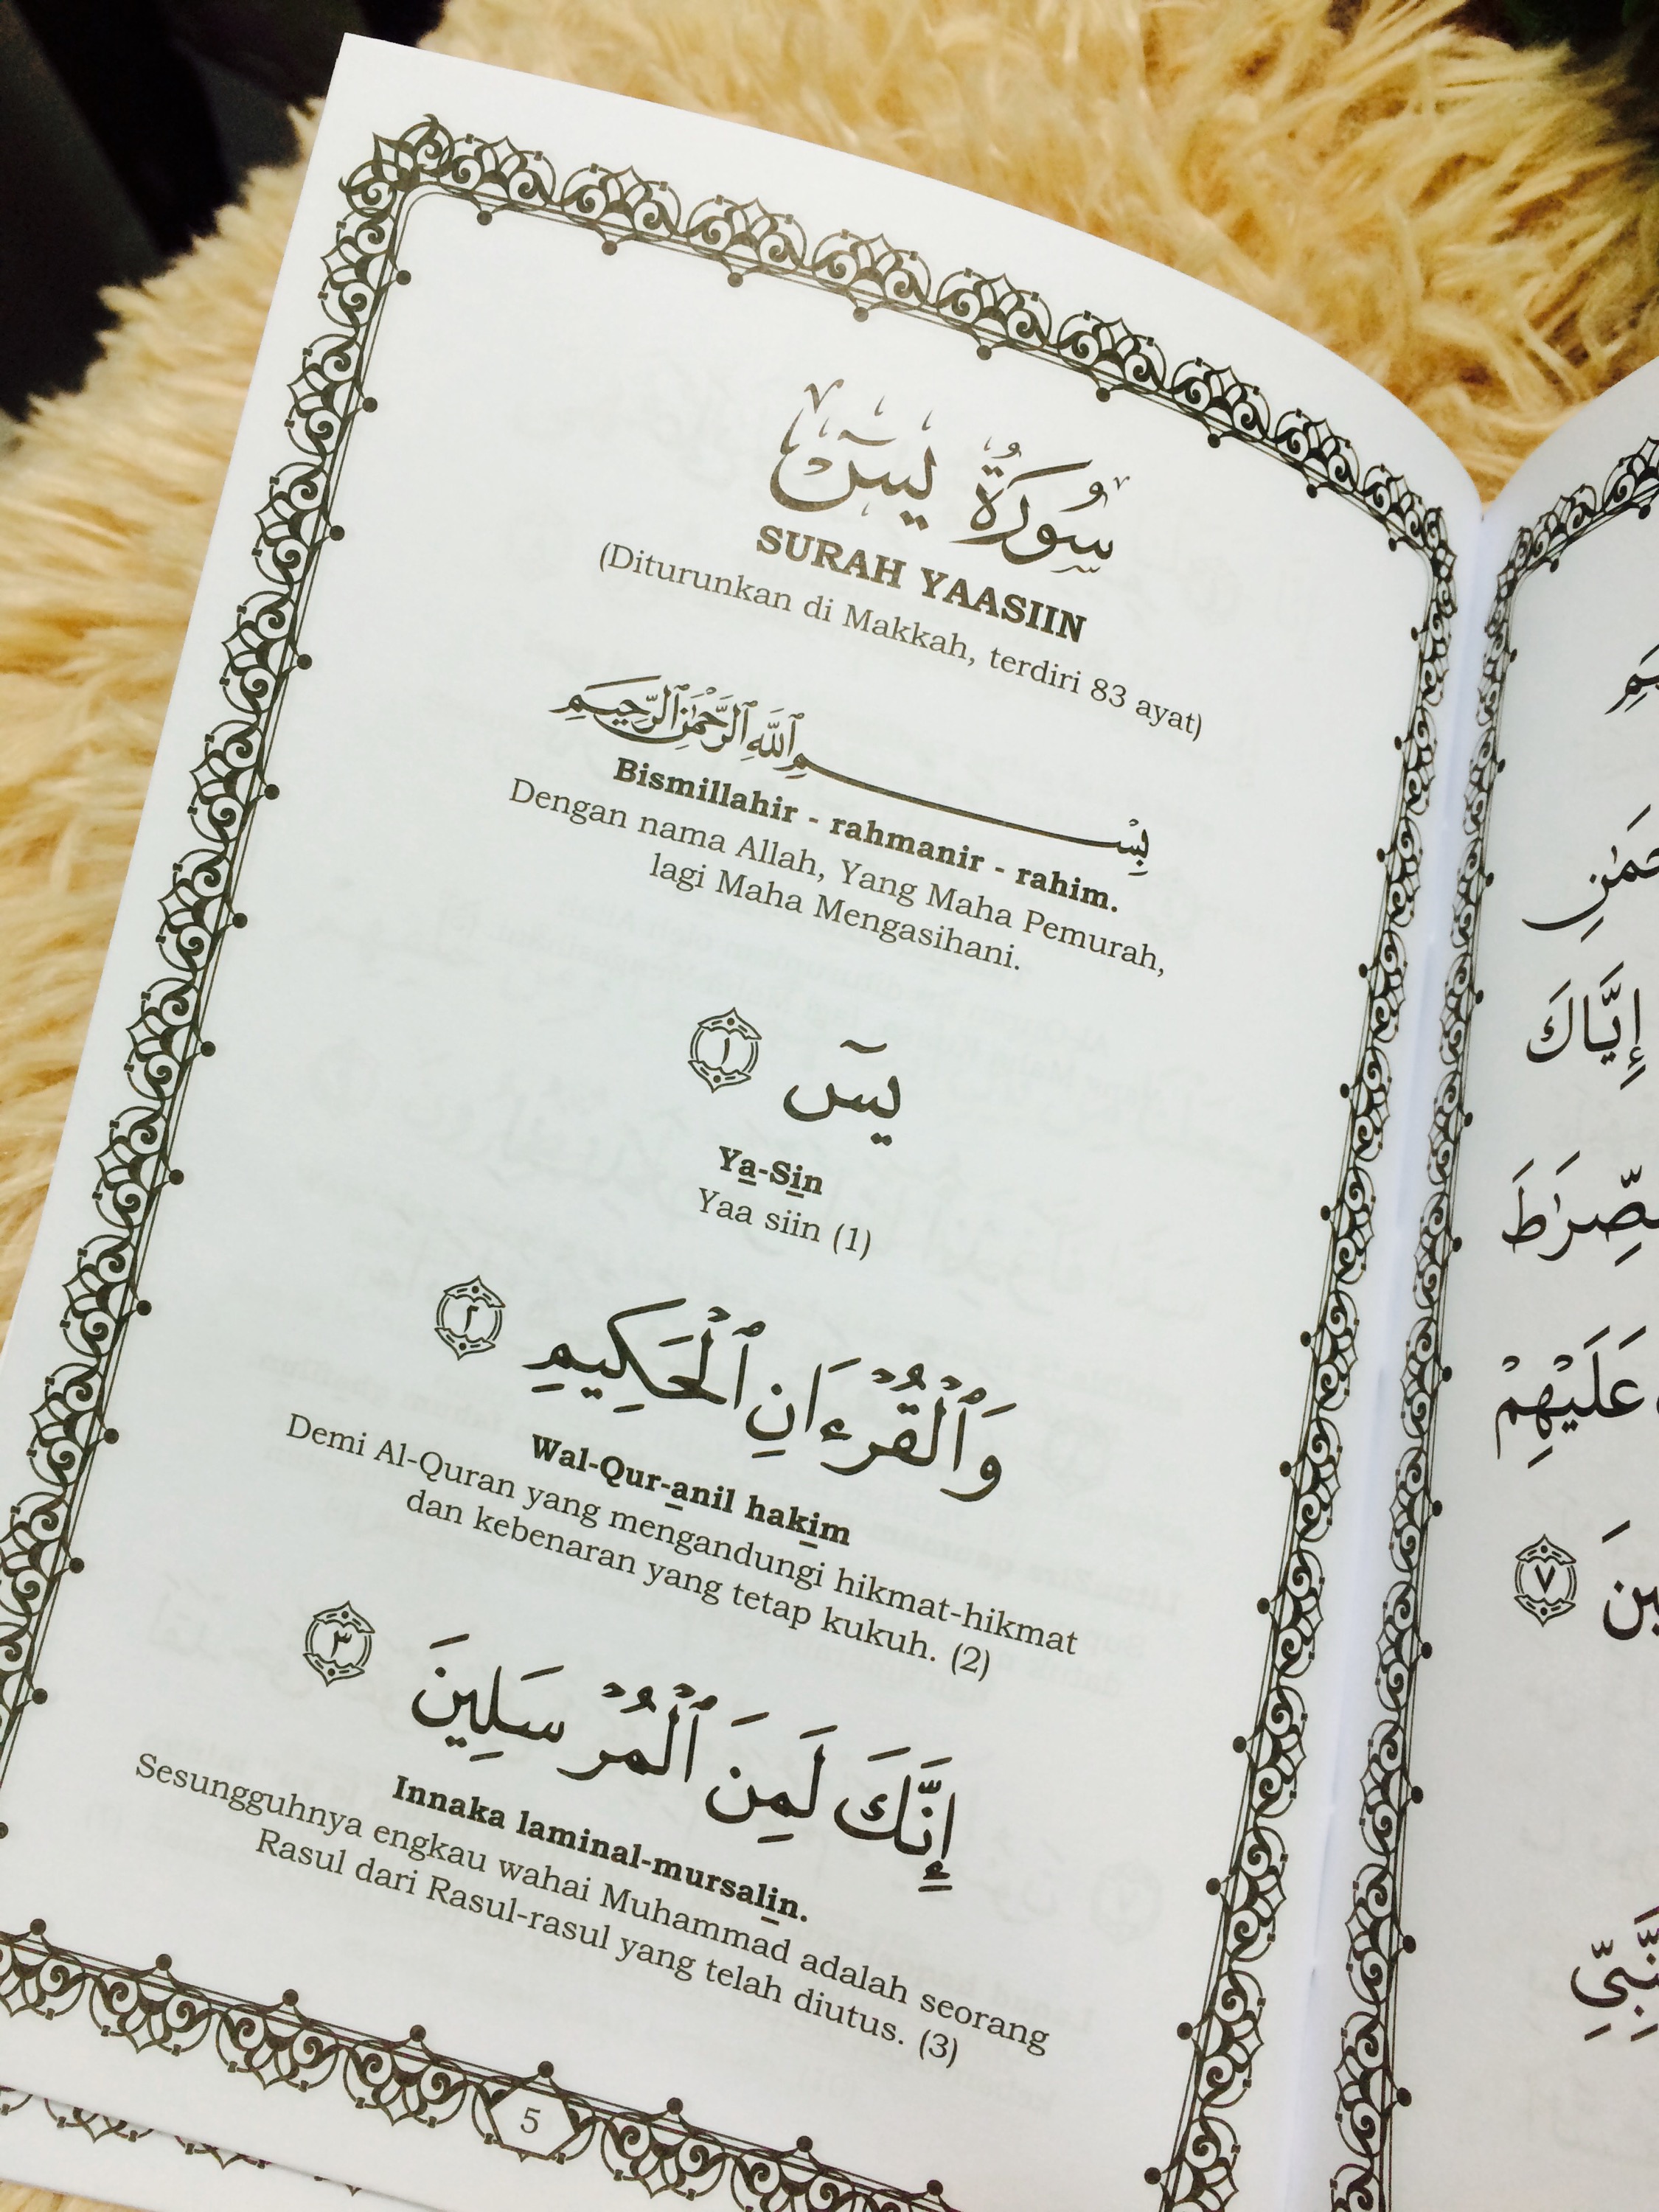 سُورَةُ يسٓ
SURAH YAASIIN
(Diturunkan di Makkah, terdiri 83 ayat)
بِسْمِ ٱللَّهِ ٱلرَّحْمَٰنِ ٱلرَّحِيمِ
Bismillahir - rahmanir - rahim.
Dengan nama Allah, Yang Maha Pemurah,
lagi Maha Mengasihani.
يسٓ ١
Ya-Sin
Yaa siin (1)
وَٱلْقُرْءَانِ ٱلْحَكِيمِ ٢
Wal-Qur-anil hakim
Demi Al-Quran yang mengandungi hikmat-hikmat
dan kebenaran yang tetap kukuh. (2)
إِنَّكَ لَمِنَ ٱلْمُرْسَلِينَ ٣
Innaka laminal-mursalin.
Sesungguhnya engkau wahai Muhammad adalah seorang
Rasul dari Rasul-rasul yang telah diutus. (3)
5
إِيَّاكَ
عَلَيْهِمْ
٧